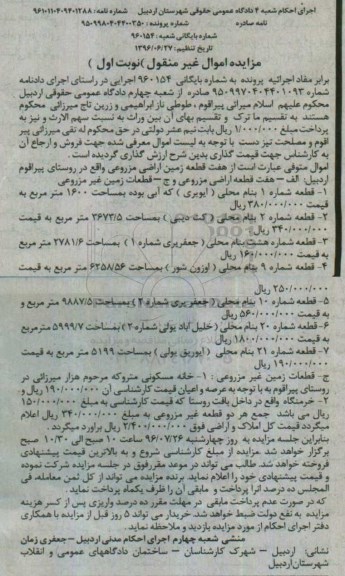 اجرای احکام شعبه ۴ دادگاه عمومی حقوقی شهرستان اردبیل شماره نامه: ۹۶۱۰۱۱۰۴۰۹۴۰۱۲۸۸
نامه صادره شماره پرونده: ۹۵۰۹۹۸۰۴۰۴۴۰۰۳۵۰
شماره بایگانی شعبه: ۹۶۰۱۵۴
تاریخ تنظیم: ۱۳۹۶/۰۶/۲۷
مزایده اموال غیر منقول (نوبت اول)
برابر مفاد اجرائیه پرونده به شماره بایگانی ۹۶۰۱۵۴ اجرایی در راستای اجرای دادنامه
شماره ۹۵۰۹۹۷۰۴۰۴۴۰۱۰۹۳ صادره از شعبه چهارم دادگاه عمومی حقوقی اردبیل
محکوم علیهم اسلام میرانی پیراقوم، طوطی ناز ابراهیمی و زرین تاج میرزائی محکوم
هستند به تقسیم ما ترک و تقسیم بهای آن بین وراث به نسبت سهم الارث و نیز به
پرداخت مبلغ ۱/۰۰۰/۰۰۰ ریال بابت نیم عشر دولتی در حق محکوم له نقی میرزائی پیر
اقوم و مصلحت تیز دست با توجه به لیست اموال معرفی شده جهت فروش و ارجاع آن
به کارشناس جهت قیمت گذاری بدین شرح ارزش گذاری گردیده است.
اموال متوفی عبارت است از هفت قطعه زمین اراضی مزروعی واقع در روستای پیراقوم
اردبیل الف – هفت قطعه اراضی مزروعی و ج – قطعات زمین غیر مزروعی
۱- قطعه شماره ۱ بنام محلی (ایوبری) که آبی بوده بمساحت ۱۶۰۰ متر مربع به
قیمت ۳۸۰/۰۰۰/۰۰۰ ریال
۲- قطعه شماره ۲ بنام محلی (کت دیبی) بمساحت ۳۶۷۳/۵ متر مربع به قیمت
۳۴۰/۰۰۰/۰۰۰ ریال
۳- قطعه شماره هشت بنام محلی (جعفرپری شماره ۱) بمساحت ۲۷۸۱/۶ متر مربع
به قیمت ۱۶۰/۰۰۰/۰۰۰ ریال
۴- قطعه شماره ۹ بنام محلی (اوزون شور) بمساحت ۶۲۵۸/۵۶ متر مربع به قیمت
۲۵۰/۰۰۰/۰۰۰ ریال
۵- قطعه شماره ۱۰ بنام محلی (جعفرپری شماره ۲) بمساحت ۹۸۸۷/۵ متر مربع و
به قیمت ۵۶۰/۰۰۰/۰۰۰ ریال
۶- قطعه شماره ۲۰ بنام محلی (خلیل آباد یولی شماره ۲) بمساحت ۵۹۹۹/۷ مترمربع
به قیمت ۱۸۰/۰۰۰/۰۰۰ ریال
۷- قطعه شماره ۲۱ بنام محلی (ایوریق یولی) بمساحت ۵۱۹۹ متر مربع به قیمت
۱۹۰/۰۰۰/۰۰۰ ریال
ج- قطعات زمین غیر مزروعی: ۱- خانه مسکونی متروکه مرحوم هزار میرزائی در
روستای پیراقوم به با توجه به عرصه و اعیان قیمت کارشناسی آن ۱۹۰/۰۰۰/۰۰۰ ریال و
۲- خرمنگاه واقع در داخل بافت روستا که قیمت کارشناسی به مبلغ ۱۵۰/۰۰۰/۰۰۰
ریال می باشد جمع هر دو قطعه غیر مزروعی به مبلغ ۳۴۰/۰۰۰/۰۰۰ ریال اعلام
میگردد قیمت کل املاک و اراضی فوق ۲/۴۰۰/۰۰۰/۰۰۰ ریال برآورد میگردد.
بنابراین جلسه مزایده به روز چهارشنبه ۹۶/۰۷/۲۶ ساعت ۱۰ صبح الی ۱۰/۳۰ صبح
برگزار خواهد شد. مزایده از مبلغ کارشناسی شروع و به بالاترین قیمت پیشنهادی
فروخته خواهد شد. طالب می تواند در موعد مقرر فوق در جلسه مزایده شرکت نموده
و قیمت پیشنهادی خود را اعلام نماید. برنده مزایده می تواند از کل ثمن معامله، فی
المجلس ده درصد آنرا پرداخت و مابقی آن را ظرف یکماه پرداخت نماید.
که در صورت عدم پرداخت مابقی در مهلت مقرر ده درصد واریزی پس از کسر هزینه
مزایده به نفع دولت ضبط خواهد شد. خریدار می تواند ۵ روز قبل از مزایده با همکاری
دفتر اجرای احکام از مورد مزایده بازدید و ملاحظه نماید.
منشی شعبه چهارم اجرای احکام مدنی اردبیل – جعفری زمان
نشانی: اردبیل – شهرک کارشناسان – ساختمان دادگاههای عمومی و انقلاب
شهرستان اردبیل